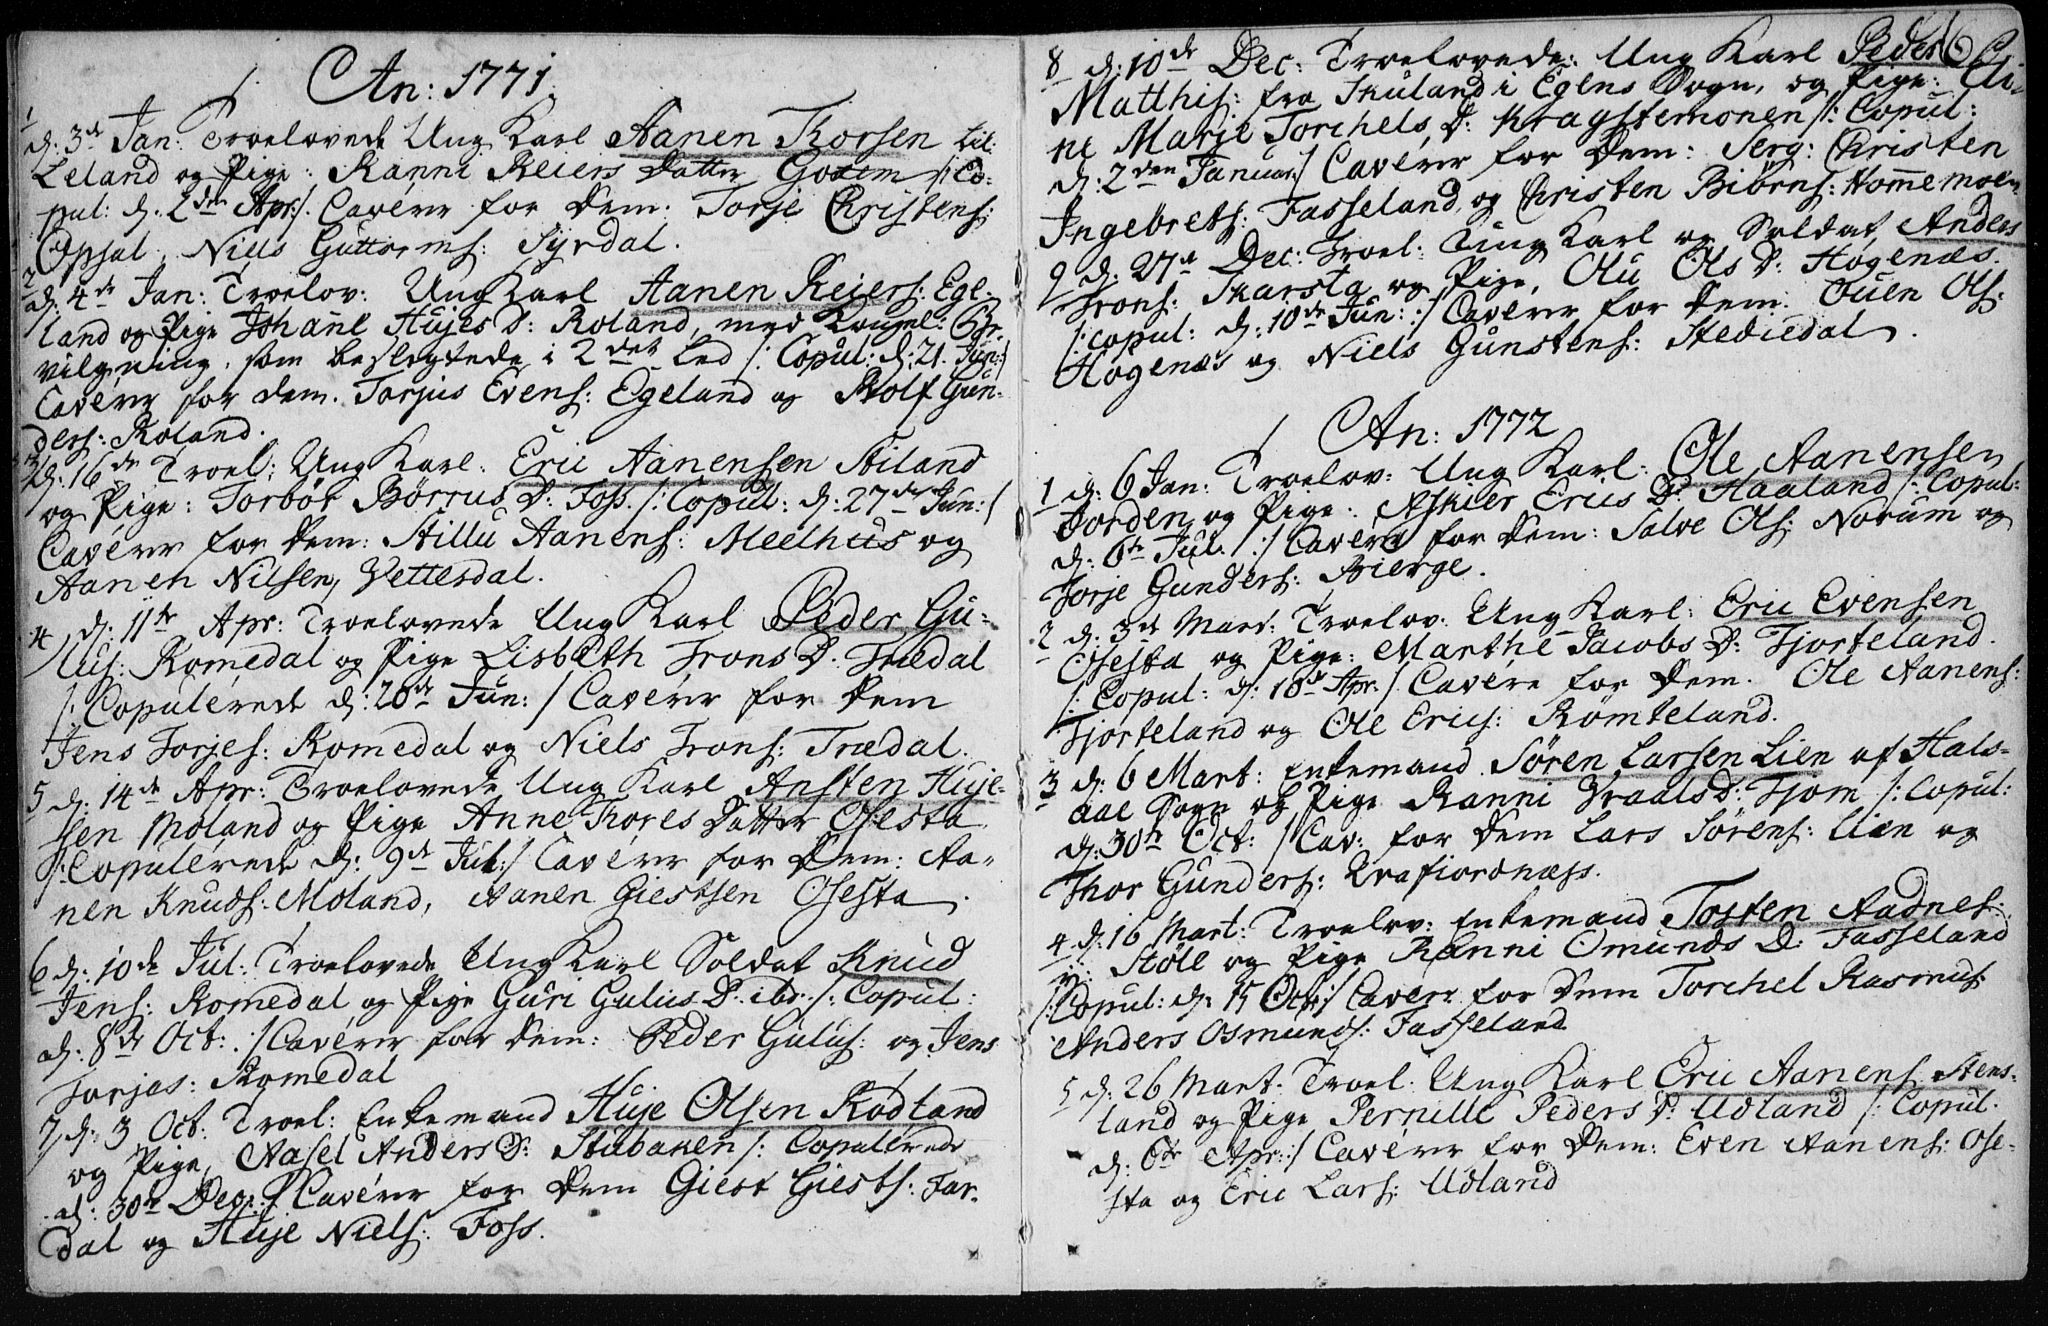 An: 1771.
1 d. 3de Jan: Troelovede Ung Karl Aanen Thorsen Lil:
Leland og Pige: Ranni Reiers Datter Godem /: Co-
pul: d: 2den Apr:/. Cavérer for Dem: Torje Christens:
Opsal, Niels Guttorms: Syrdal.
2 d. 4de Jan: Troelov: Ung Karl Aanen Reiers: Ege-
land og Pige Johañe Hujes D: Roland, med Kongel: Be-
vilgning, som beslegtede i 2det Led /: Copul: d: 21. Jun:/
Cavérer for dem. Torjus Evens: Egeland og Rolf Gun-
ders: Roland.
3 d: 16de Troel: Ung Karl: Eric Aanensen Stiland
og Pige: Torbor Börrus D: Foss. /: Copul: d: 27de Jun:/
Cavérer for Dem: Stillu Aanens: Meelhus og
Aanen Nilsen, Vetterdal.
4 d: 11te Apr: Troelovede Ung Karl Peder Gu-
lus: Romedal og Pige Lisbeth Trons D. Trædal
/: Copulerede d: 20de Jun:/ Cavérer for Dem
Jens Torjes: Romedal og Niels Trons: Trædal.
5 d: 14de Apr: Troelovede Ung Karl Ansten Huje-
sen Moland og Pige Anne Thores Datter Osesta
/: Copulerede d: 9de Jul:/ Cavérer for Dem: Aa-
nen Knuds: Moland, Aanen Giestsen Osesta.
6 d: 10de Jul: Troelovede Ung Karl Soldat Knud
Jens: Romedal, og Pige Guri Gulus D. ibr. /: Copul:
d. 8de Oct: :/ Cavérer for Dem: Peder Gulus: og Jens
Torjas: Romedal
7 d: 3 Oct: Troel: Enkemand Huje Olsen Rodland
og Pige, Aasel Anders D: Stubaken /: Copulerede
d: 30te Dec:/ Cavérer for Dem Giest Giests: Far-
dal og Huje Niels: Foss.
6
8 d: 10de Dec: Troelovede: Ung Karl Peder
Matthis: fra Skuland i Egens Sogn, og Pige: Ai-
ne Marje Torchels D: Kragstemonen /: Copul:
d: 2den Januar:/ Cavérer for Dem: Serg: Christen
Ingebrets: Fasseland, og Christen Biörns: Hommemoen
9 d: 27de Dec: Troel: Ung Karl og Soldat Anders
Trons: Skarsta og Pige, Olu Ols D: Høgenæs.
/: copul: d: 10de Jun: :/ Cavérer for Dem: Ouen Ols:
Høgenæs og Niels Gunstens: Stediedal.
An: 1772
1 d: 6 Jan: Troelov: Ung Karl: Ole Aanensen
Jorden og Pige: Askier Erics D: Haaland /: Copul:
d: 6te Jul: :/ Cavérer for Dem: Salve Ols: Norum og
Torje Gunders: Bierge.
2 d: 3de Mart: Troelov: Ung Karl: Eric Evensen
Osesta og Pige: Marthe Jacobs D: Fjorteland.
/: Copul: d: 10de Apr:/ Cavére for Dem. Ole Aanens:
Fjorteland og Ole Erics: Römteland.
3 d: 6 Mart: Enkemand Sören Larsen Lien af Hals-
aae Sogn og Pige Ranni Vraals D: Fjom /: Copul:
d: 30te Oct: :/ Cav: for Dem Lars Sörens: Lien og
Thor Gunders: Trafiordnæss.
4 d: 16 Mart: Troelov: Enkemand Tosten Aadnes:
Støle og Pige Ranni Omunds D: Fasseland
/: Copul: d: 15 Oct:/ Cavérer for Dem Torchel Rasmus:
Anders Osmunds: Fasseland
5 d: 26 Mart: Troel: Ung Karl Eric Aanens: Stens-
land og Pige Pernille Peders D: Udland /: Copul.
d: 6te Apr::/ Cavérer for Dem: Even Aanens: Ose-
sta og Eric Lars: Udland